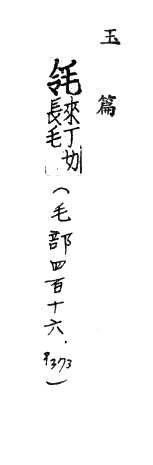 玉篇
來丁切
長毛
(毛部四百十六. P373)